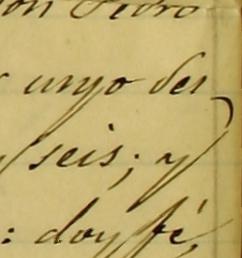 Don Pedro
cuyo des
seis; y
: doy fé,